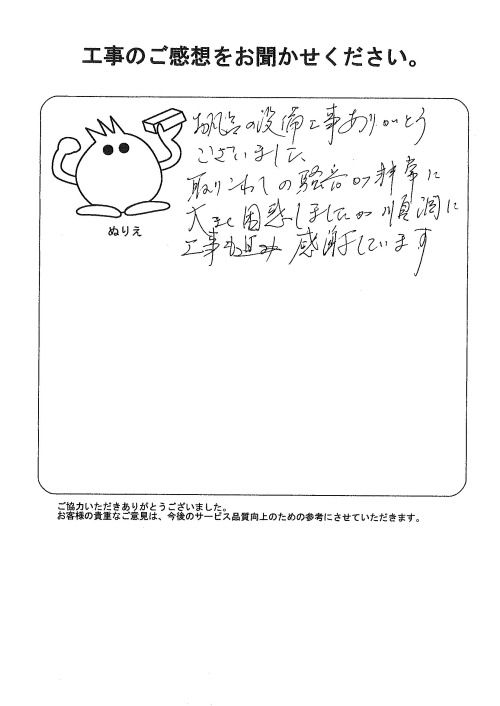 工事のご感想をお聞かせください。
お風呂の設備工事ありがとう
ございました、
取りこわしの騒音が非常に
大きく困惑しましたが順調に
工事も進み 感謝しています
ぬりえ
ご協力いただきありがとうございました。
お客様の貴重なご意見は、今後のサービス品質向上のための参考にさせていただきます。